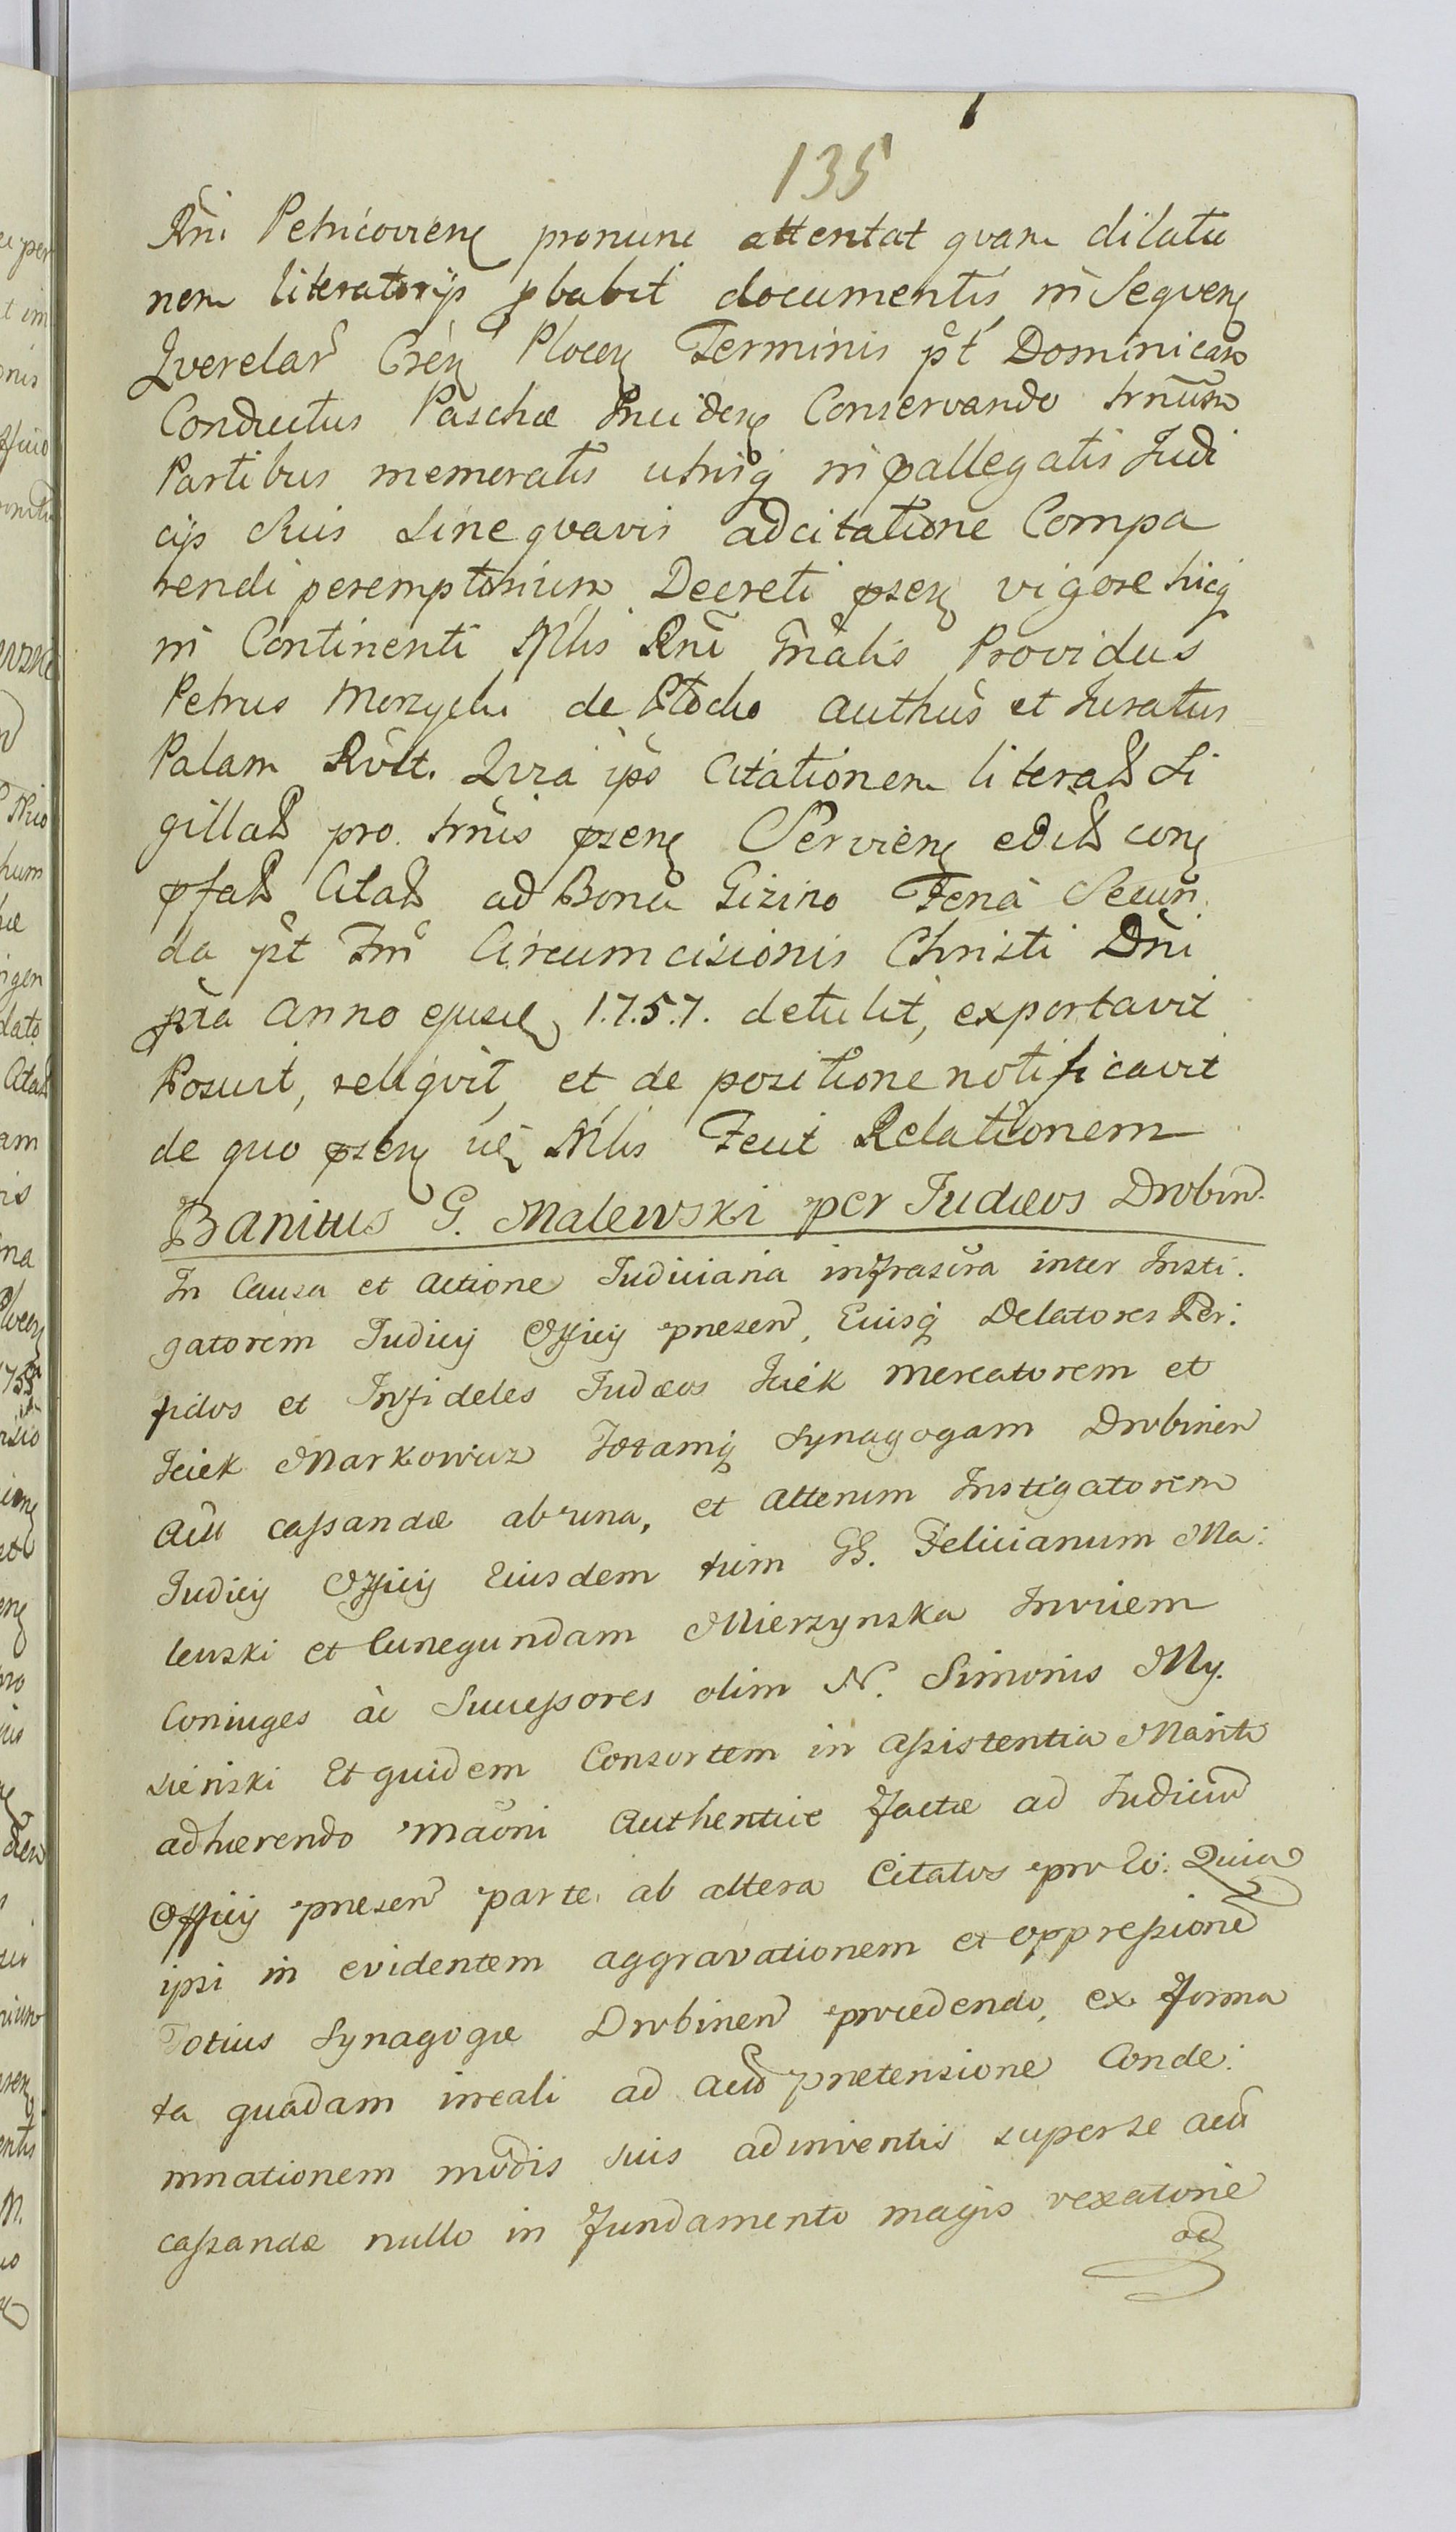 135
Rni Petricovien pronunc attentat qvam dilatio
nem literatorys pbabit documentis in Seqven
Qverelar Cren Plocen Terminis pt Dominicam
Conductus Paschæ Inciden Conservando trnum
Partibus memoratis utrisq in pallegatis Judi
cys suis Sine qvavis adcitatione Compa
rendi peremptorium Decreti psen vigore hicq
in Continenti Mlis Rni Gnalis Providus
Petrus Morzycki de Plocko authus et Juratus
Palam Rvlt. Qvia ips Citationem literal Si
gillal pro trnis psen Servien edil con
pfal Cital ad Bona Gizino Feria Secun
da pt Fm Circumcisionis Christi Dni
pria Anno ejusd 1.7.5.7. detulit, exportavit
Posuit, reliqvit, et de positione notificavit
de quo psen ve Mlis Fecit Relationem
Banitus G. Malewski per Judæos Drobin.
In Causa et Actione Judiciaria infrascra inter Insti.
gatorem Judicy Officy præsen, Eiusq Delatores Per:
fidos et Infideles Judæos Icek Mercatorem et
Iciek Markowicz Totamq Synagogam Drobinen
Acu cassandæ ab una, et Alterum Instigatorem
Judicy Officy Eiusdem tum GG. Felicianum Ma:
lewski et Cunegundam Mierzynska Invicem
Coniuges ac Successores olim N. Simonis My.
sienski Et quidem Consortem in Assistentia Mariti
adhærendo Maoni Authentice factæ ad Judicium
Officy præsen parte ab altera Citatos pro Eo: Quia
ipsi in evidentem aggravationem et oppressione
Totius Synagogæ Drobinen procedendo, ex forma
ta quadam irreali ad Acto prætensione Conde:
mnationem modis suis adinventis super se acu
cassandæ nullo in fundamento magis vexatorie
ad